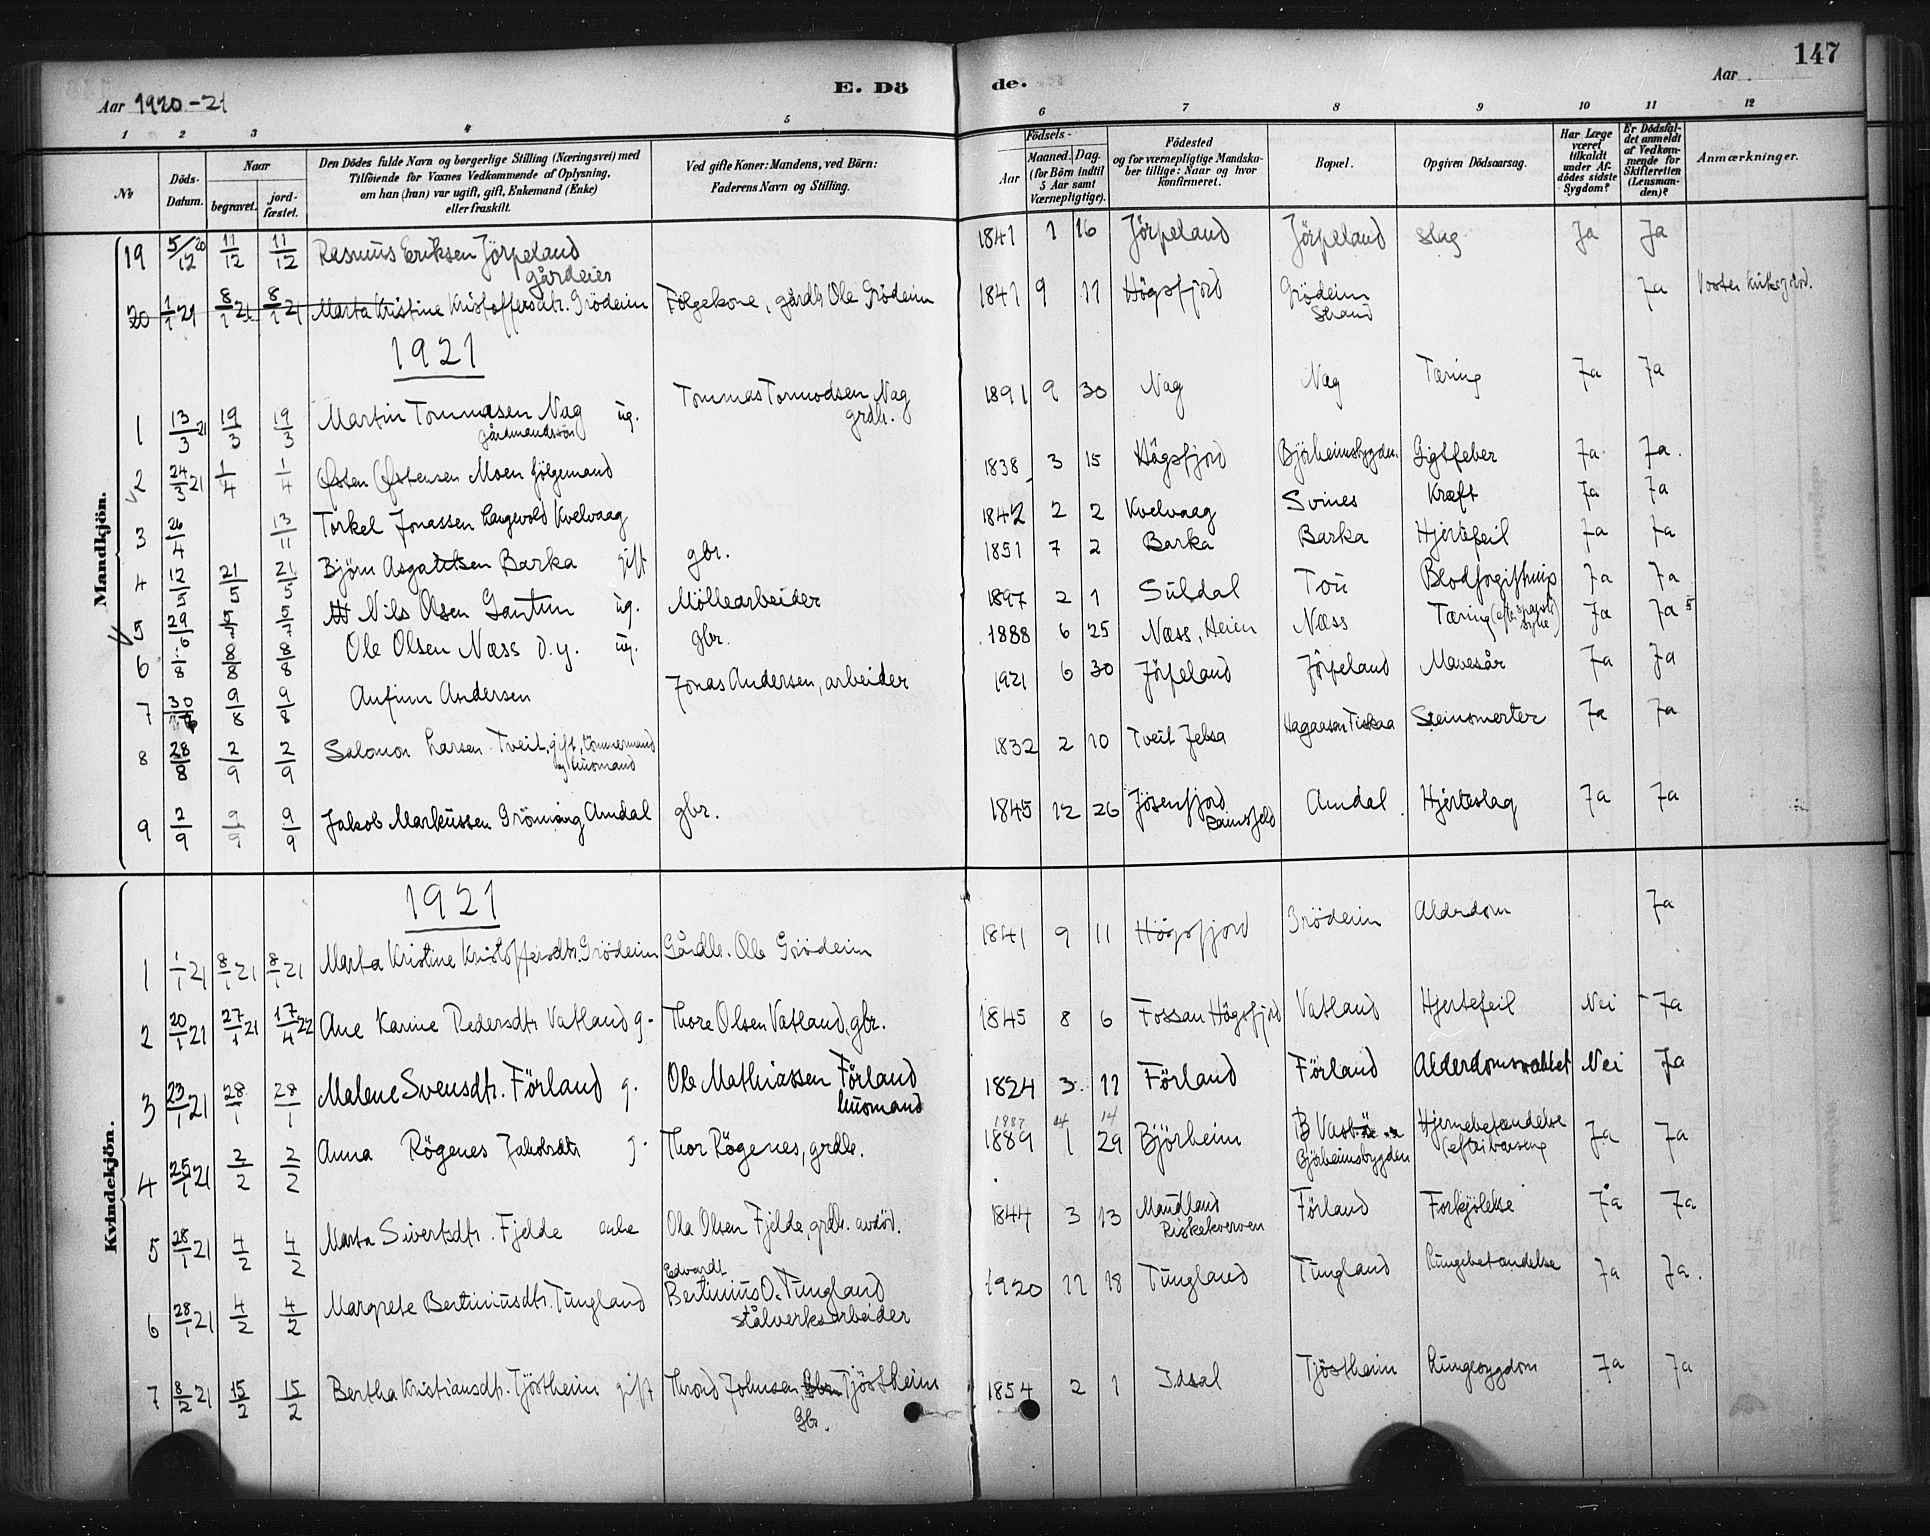 147
Aar 1920-21
E. Dö de.
Aar
1 2 3 4 5 6 7 8 9 10 11 12
Nr
Döds-Datum.
Naar
begravet.
jord-fæstet.
Den Dödes fulde Navn og borgerlige Stilling (Næringsvei) med
Tilföiende for Voxnes Vedkommende af Oplysning,
om han (hun) var ugift, gift, Enkemand (Enke)
eller fraskilt.
Ved gifte Koner: Mandens, ved Börn:
Faderens Navn og Stilling.
Födsels-
Aar
Maaned. Dag.
(for Börn indtil
5 Aar samt
Værnepligtige).
Födested
og for værnepligtige Mandska-
ber tillige: Naar og hvor
konfirmeret.
Bopæl.
Opgiven Dödsaarsag.
Har Læge
været
tilkaldt
under Af-
dödes sidste
Sygdom?
Er Dödsfal-
det anmeldt
af Vedkom-
mende for
Skifteretten
(Lensman-
den)?
Anmærkninger.
Mandkjön.
19 5/12 20 11/12 11/12 Rasmus Eriksen Jörpeland gårdeier 1841 1 16 Jörpeland Jörpeland Slag Ja Ja
20 1/1 21 8/1 21 8/1 21 Marta Kristine Kristoffersdtr. Grödeim Følgekone, gårdbr Ole Grödeim 1841 9 11 Högsfjord Grödeim Strand Ja
1921
1 13/3 21 19/3 19/3 Martin Tommasen Nag ug. gårdmandssön Tommas Tormodsen Nag grdbr. 1891 9 30 Nag Nag Tæring Ja Ja
2 24/3 21 1/4 1/4 Østen Østensen Moen fölgemand 1838 3 15 Högsfjord Björheimsbygden Gigtfeber Ja Ja
3 26/4 13/11 Torkel Jonassen Langevold Kvelvaag 1842 2 2 Kvelvaag Svines Kræft Ja Ja
4 12/5 21/5 21/5 Björn Asgautsen Barka gift gbr. 1851 7 2 Barka Barka Hjertefeil Ja Ja
5 29/6 5/7 5/7 Nils Olsen Gautun ug. Möllearbeider 1897 2 1 Suldal Tou Blodforgiftning Ja Ja
6 /8 8/8 8/8 Ole Olsen Næss d.y. ug. gbr. 1888 6 25 Næss, Heien Næss Tæring Ja Ja
7 30 9/8 9/8 Anfinn Andersen Jonas Andersen, arbeider 1921 6 30 Jörpeland Jörpeland Mavesår Ja Ja
8 28/8 2/9 2/9 Salomon Larsen Tveit, gift, tömmermand og husmand 1832 2 10 Tveit Jelsa Steinsmerter Ja Ja
9 2/9 9/9 9/9 Jakob Markussen Grönning Amdal gbr. 1845 12 26 Jösenfjord Amdal Hjerteslag Ja Ja
Kvindekjön.
1921
1 1/1 21 8/1 21 8/1 21 Marta Kristine Kristoffersdtr. Grödeim Gårdbr. Ole Grödeim 1841 9 11 Högsfjord Grödeim Alderdom Ja
2 20/1 21 27/1 21 17/4 22 Ane Karine Pedersdtr Vatland g. Thore Olsen Vatland, gbr. 1845 8 6 Fossan Högsfjord Vatland Hjertefeil Nei Ja
3 23/1 21 28/1 28/1 Malene Svensdtr. Förland g. Ole Mathiassen Förland husmand 1824 3 11 Förland Förland Alderdomssvakhet Nei Ja
4 25/1 21 2/2 2/2 Anna Rögenes Jakobsdtr g. Thor Rögenes, grdbr. 1887 4 14 1889 1 29 Björheim Björheimsbygden Hjernebetændelse Ja Ja
5 28/1 21 4/2 4/2 Marta Sivertsdtr. Fjelde enke Ola Olsen Fjelde, grdbr. avdöd. 1844 3 13 Maudland Riskekverven Förland Forkjölelse Ja Ja
6 28/1 21 4/2 4/2 Margrete Bertiniusdtr. Tungland Edvardt Bertinius O. Tungland stålverksarbeider 1920 12 18 Tungland Tungland Lungebetændelse Ja Ja.
7 8/2 21 15/2 15/2 Bertha Kristiansdtr. Tjöstheim gift Thrond Johnsen Tjöstheim Gbr. 1854 2 1 Idsal Tjöstheim Lungesygdom Ja Ja